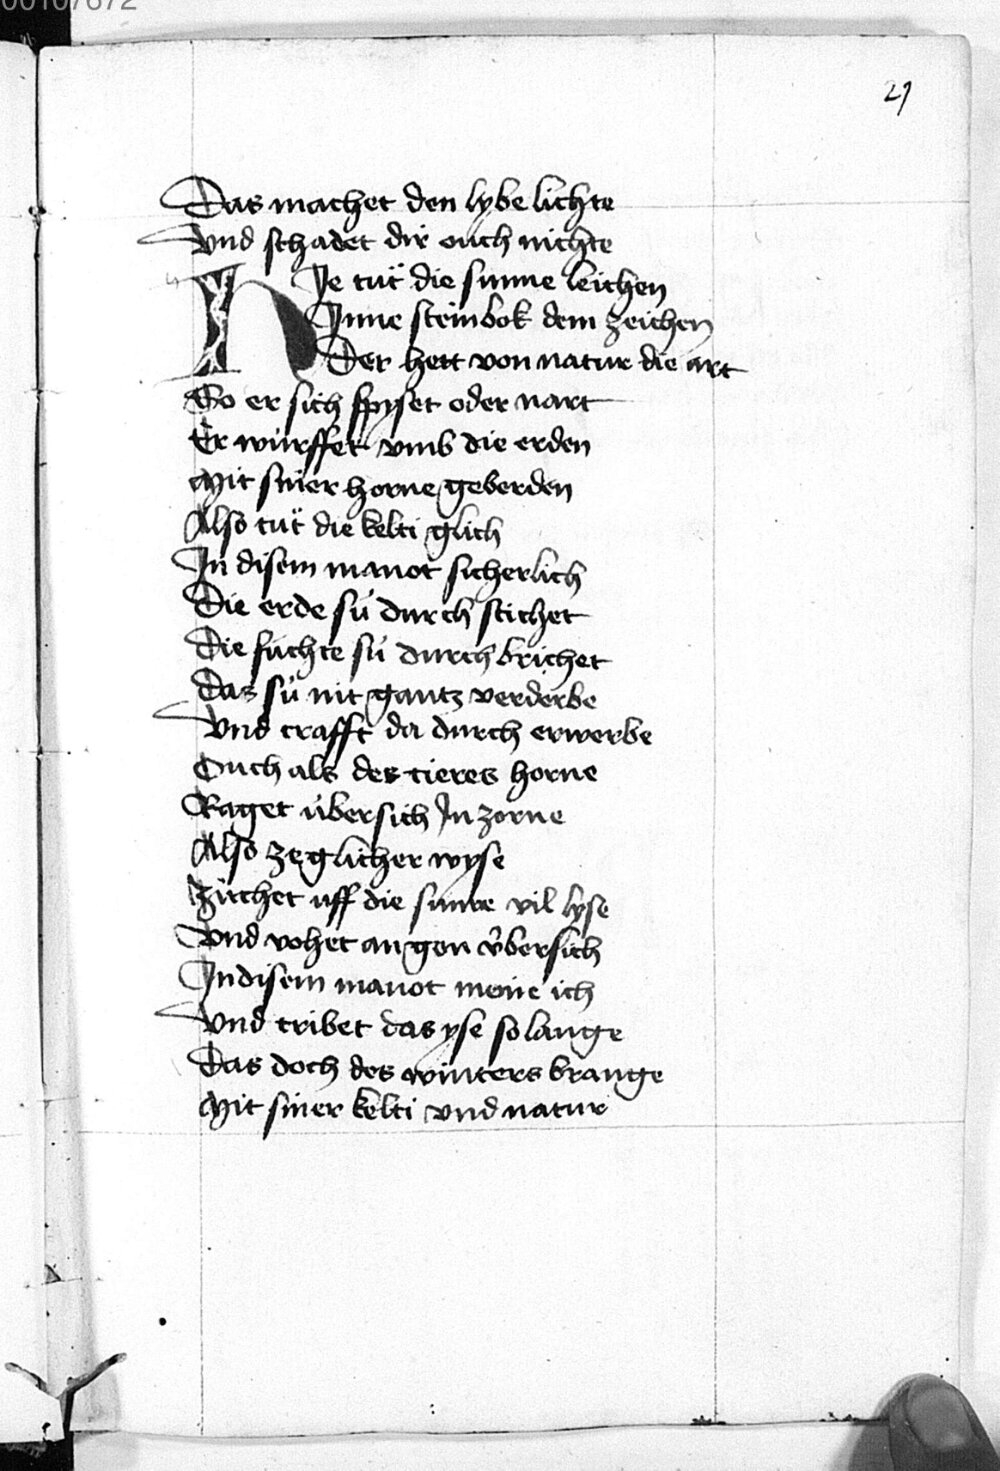 29
Das machet den lybe lichte
Vnd schadet dir ouch nichte
HJe tuͤt die sunne leichen
Jnne steinbok dem zeichen
Der hett von natur die art
So er sich spyset oder nart
Er würffet vmb die erden
Mit siner horne geberden
Also tuͤt die kelti glich
Jn disem manot sicherlich
Die erde sú durch stichet
Die fúchte sú durch brichet
Das sú nit gantz verderbe
Vnd crafft da durch erwerbe
Ouch als des tieres horne
Raget úbersich Jn zorne
Also zeglicher wyse
Zúchet uff die sunne vil lyse
Vnd vohet an gon v̊bersich
Jn disem manot meine ich
Vnd tribet das yse so lange
Das doch des winters brange
Mit siner kelti vnd natur